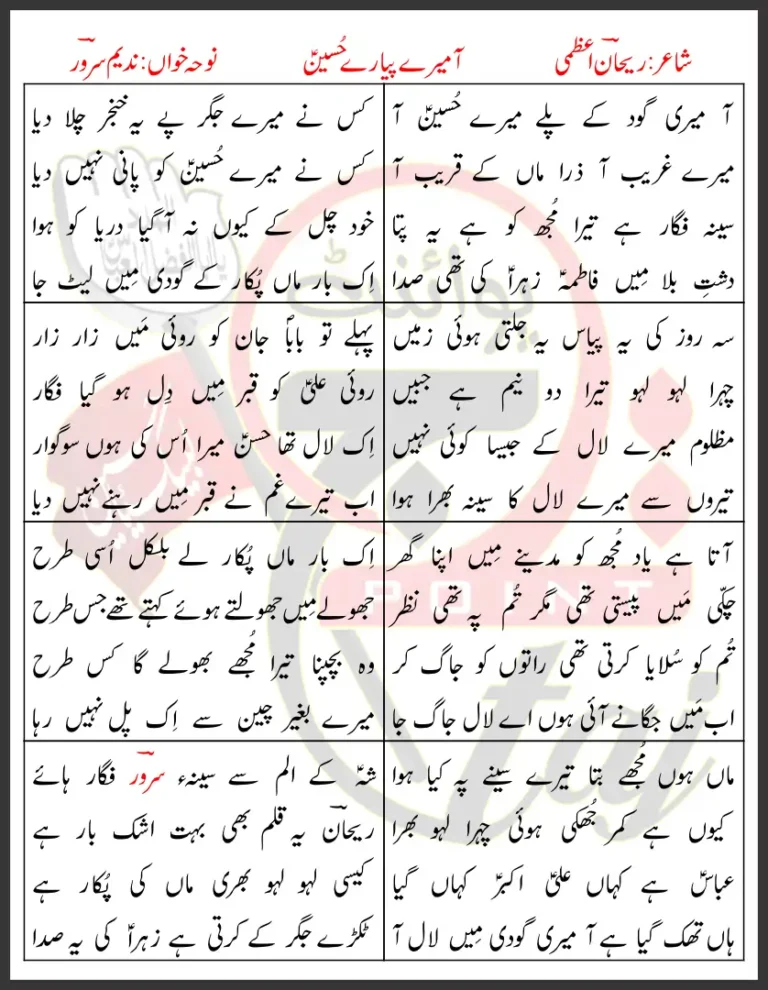 شاعر: ریحانؔ اعظمی
آ میرے پیارے حُسینؑ
نوحہ خواں: ندیم سرورؔ
آ میری گود کے پلے میرے حُسینؑ آ
میرے غریب آ ذرا ماں کے قریب آ
سینہ فگار ہے تیرا مُجھ کو ہے یہ پتا
دشتِ بلا مِیں فاطمہؑ زہراؑ کی تھی صدا
کس نے میرے جگر پے یہ خنجر چلا دیا
کس نے میرے حُسینؑ کو پانی نہیں دیا
خود چل کے کیوں نہ آ گیا دریا کو ہوا
اِک بار ماں پُکار کے گودی مِیں لیٹ جا
سہ روز کی یہ پیاس یہ جلتی ہوئی زمیں
چہرا لہو لہو تیرا دو نیم ہے جبیں
مظلوم میرے لال کے جیسا کوئی نہیں
تیروں سے میرے لال کا سینہ بھرا ہوا
پہلے تو باباؐ جان کو روئی مَیں زار زار
روئی علیؑ کو قبر مِیں دِل ہو گیا فگار
اِک لال تھا حسنؑ میرا اُس کی ہوں سوگوار
اب تیرے غم نے قبر مِیں رہنے نہیں دیا
آتا ہے یاد مُجھ کو مدینے مِیں اپنا گھر
چکّی مَیں پیستی تھی مگر تُم پہ تھی نظر
تُم کو سُلایا کرتی تھی راتوں کو جاگ کر
اب مَیں جگانے آئی ہوں اے لال جاگ جا
اِک بار ماں پُکار لے بلکل اُسی طرح
جھولے مِیں جھولتے ہوئے کہتے تھے جس طرح
وہ بچپنا تیرا مُجھے بھولے گا کس طرح
میرے بغیر چین سے اِک پل نہیں رہا
ماں ہوں مُجھے بتا تیرے سینے پہ کیا ہوا
کیوں ہے کمر جُھکی ہوئی چہرا لہو بھرا
عباسؑ ہے کہاں علیؑ اکبرؑ کہاں گیا
ہاں تھک گیا ہے آ میری گودی مِیں لال آ
شہؑ کے الم سے سینہء سرورؔ فگار ہائے
ریحانؔ یہ قلم بھی بہت اشک بار ہے
کیسی لہو لہو بھری ماں کی پُکار ہے
ٹکڑے جگر کے کرتی ہے زہراؑ کی یہ صدا
پوائنٹ
POINT
taj